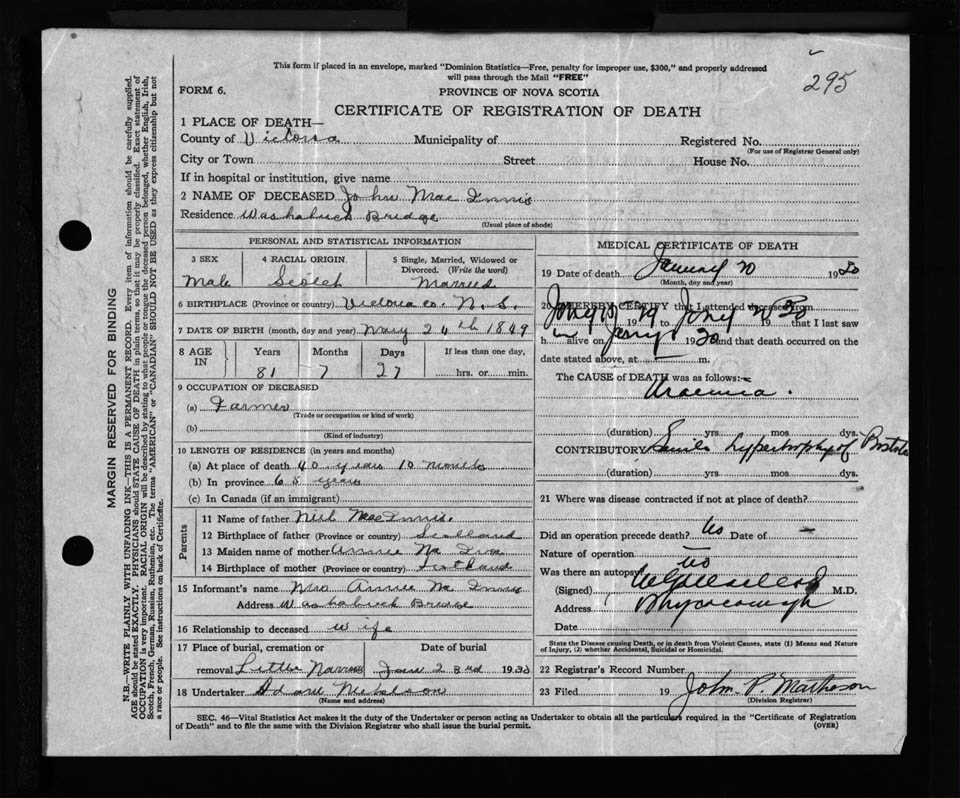 295
This form if placed in an envelope, marked "Dominion Statistics—Free, penalty for improper use, $300," and properly addressed
will pass through the Mail "FREE"
FORM 6.
PROVINCE OF NOVA SCOTIA
CERTIFICATE OF REGISTRATION OF DEATH
1 PLACE OF DEATH—
County of Victoria Municipality of Registered No.
(For use of Registrar General only)
City or Town Street House No.
If in hospital or institution, give name
2 NAME OF DECEASED John Mac Innis
Residence Washabuck Bridge
(Usual place of abode)
PERSONAL AND STATISTICAL INFORMATION
3 SEX 4 RACIAL ORIGIN. 5 Single, Married, Widowed or
Divorced. (Write the word)
Male Scotch Married
6 BIRTHPLACE (Province or country) Victoria co. N. S.
7 DATE OF BIRTH (month, day and year) May 24th 1849
8 AGE IN Years Months Days If less than one day,
81 7 27 hrs. or min.
9 OCCUPATION OF DECEASED
(a) Farmer
(Trade or occupation or kind of work)
(b)
(Kind of industry)
10 LENGTH OF RESIDENCE (in years and months)
(a) At place of death 40 years 10 months
(b) In province 65 years
(c) In Canada (if an immigrant)
Parents
11 Name of father Niel MacInnis.
12 Birthplace of father (Province or country) Scotland
13 Maiden name of mother Annie Mc
14 Birthplace of mother (Province or country) Scotland
15 Informant's name Mrs Annie Mc Innis
Address Washabuck Bridge
16 Relationship to deceased wife
17 Place of burial, cremation or Date of burial
removal Little Narrows Jan 23rd 1930
18 Undertaker
(Name and address)
MEDICAL CERTIFICATE OF DEATH
19 Date of death January 20 1930
(Month, day and year)
20 I HEREBY CERTIFY that I attended deceased from
19 to 19 that I last saw
h im alive on 1930 and that death occurred on the
date stated above, at m.
The CAUSE of DEATH was as follows:—
Uraemia.
(duration) yrs mos dys.
CONTRIBUTORY Senile hypertrophy of Prostate
(duration) yrs. mos. dys.
21 Where was disease contracted if not at place of death?
Did an operation precede death? No Date of
Nature of operation
Was there an autopsy no
(Signed) M.D.
Address Whycocomagh
Date
State the Disease causing Death, or in death from Violent Causes, state (1) Means and Nature
of Injury, (2) whether Accidental, Suicidal or Homicidal.
22 Registrar's Record Number
23 Filed 19 John P. Matheson
(Division Registrar)
SEC. 46—Vital Statistics Act makes it the duty of the Undertaker or person acting as Undertaker to obtain all the particulars required in the "Certificate of Registration
of Death" and to file the same with the Division Registrar who shall issue the burial permit. (OVER)
MARGIN RESERVED FOR BINDING
N.B.—WRITE PLAINLY WITH UNFADING INK—THIS IS A PERMANENT RECORD. Every item of information should be carefully supplied.
AGE should be stated EXACTLY. PHYSICIANS should STATE CAUSE OF DEATH in plain terms, so that it may be properly classified. Exact statement of
OCCUPATION is very important. RACIAL ORIGIN will be described by stating to what people or tongue the deceased person belonged, whether English, Irish,
Scotch, French, German, Russian, Ruthenian, etc. The terms "AMERICAN" or "CANADIAN" SHOULD NOT BE USED as they express citizenship but not
a race or people. See instructions on back of Certificate.